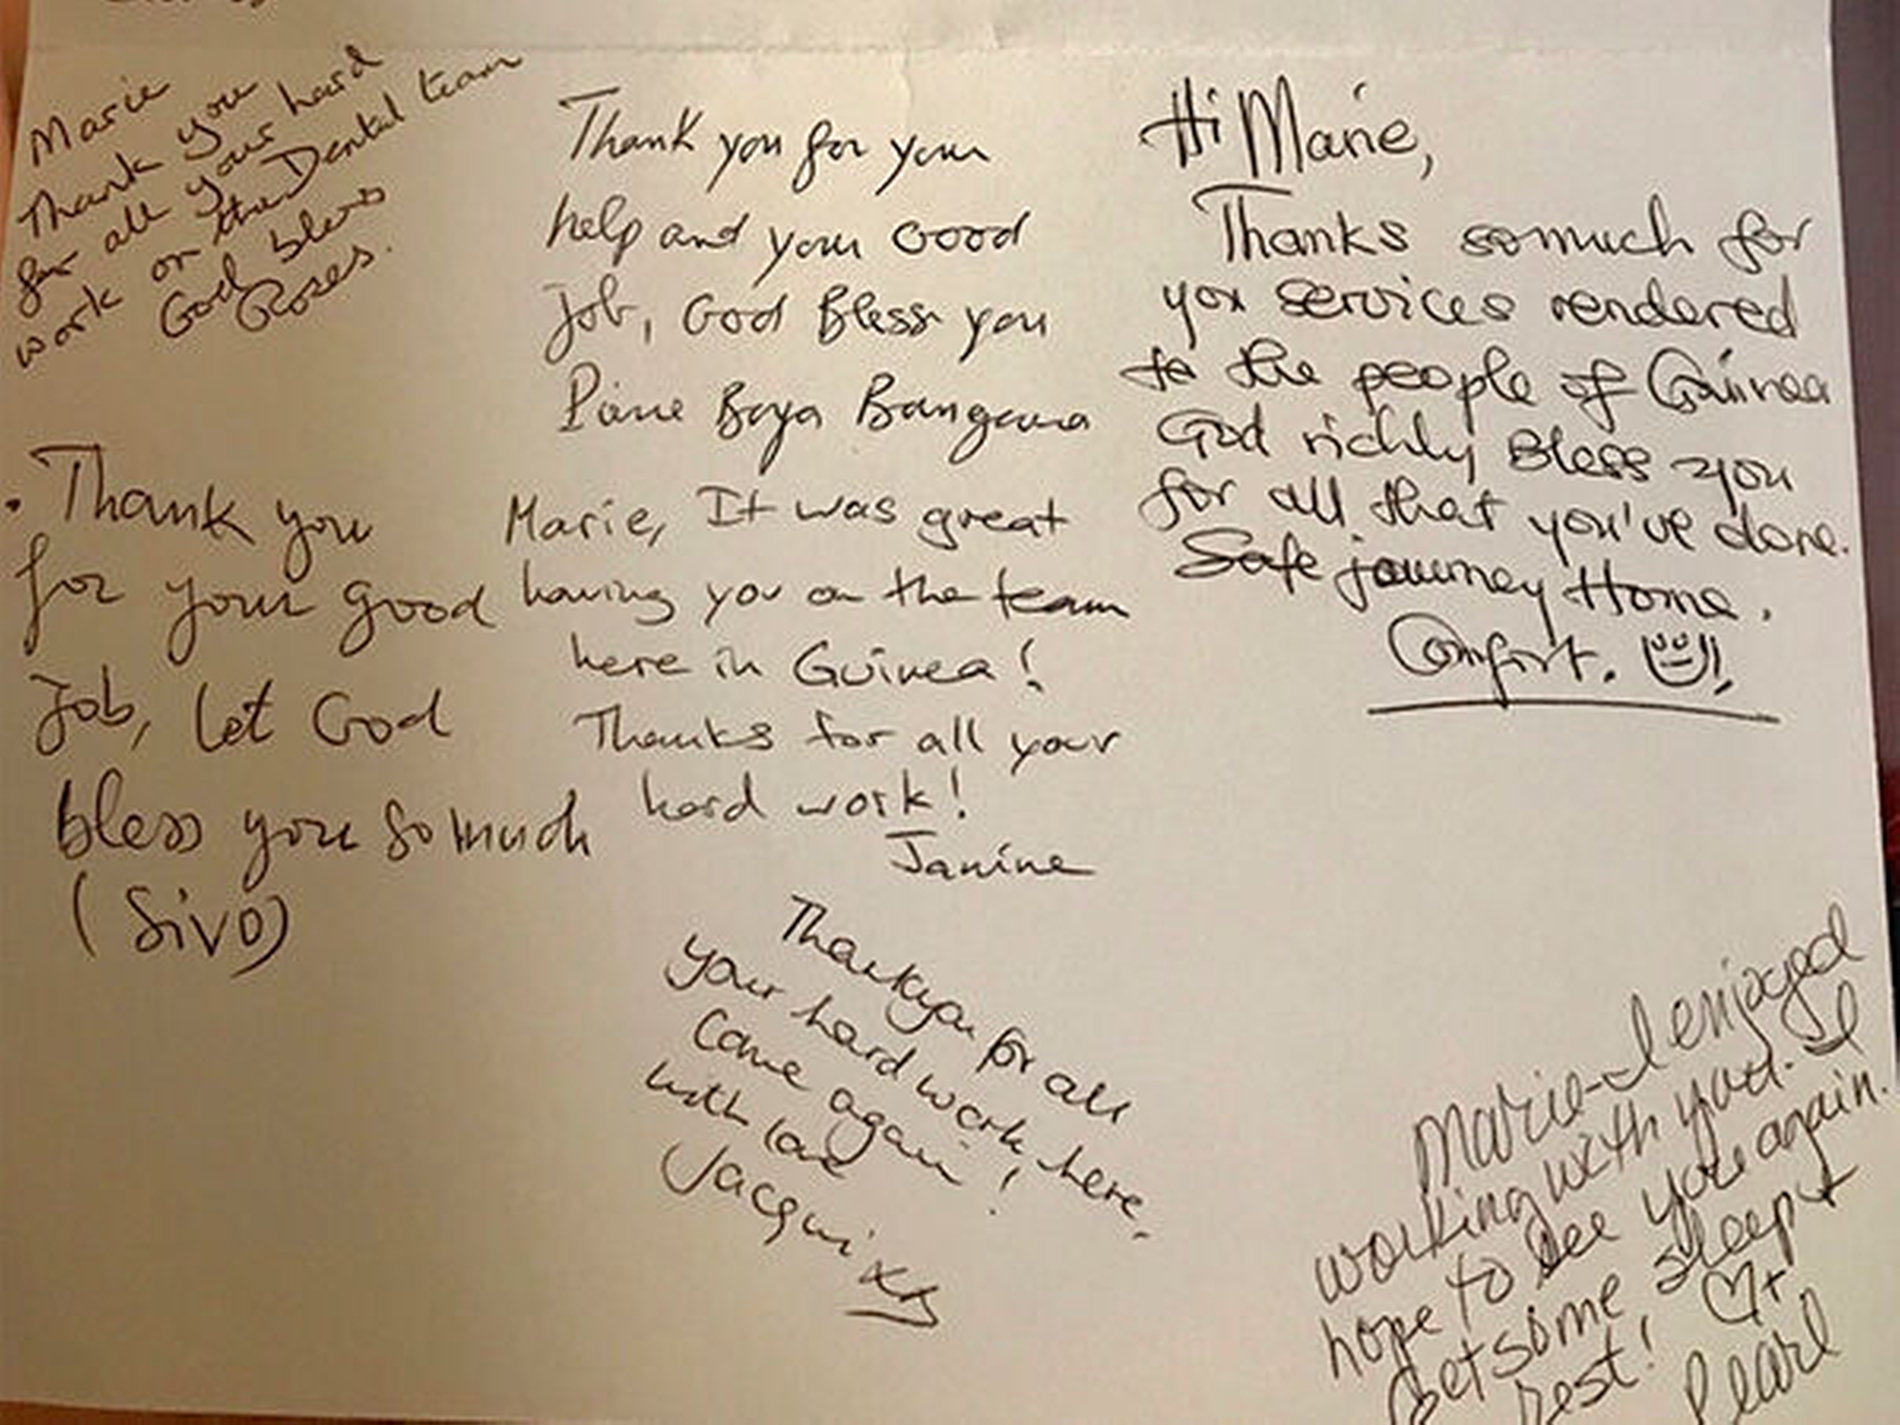 Marie
Thank you
for all your hard
work on the Dental team
God bless
Roses.
Thank you for your
help and your Good
Job, God Bless you
Boya Bangoura
Hi Marie,
Thanks somuch for
your services rendered
to the people of Guinea
God richly Bless you
for all that you've done.
Safe journey Home.
Comfort.
. Thank you
for your good
Job, let God
bless you so much
(Sivo)
Marie, It was great
having you on the team
here in Guinea!
Thanks for all your
hard work!
Janine
Thankyou for all
your hard work here.
Come again!
with love
Jacqui xx
Marie-I enjoyed
working with you. I
hope to see you again.
Get some sleep +
rest! ♡+
Pearl